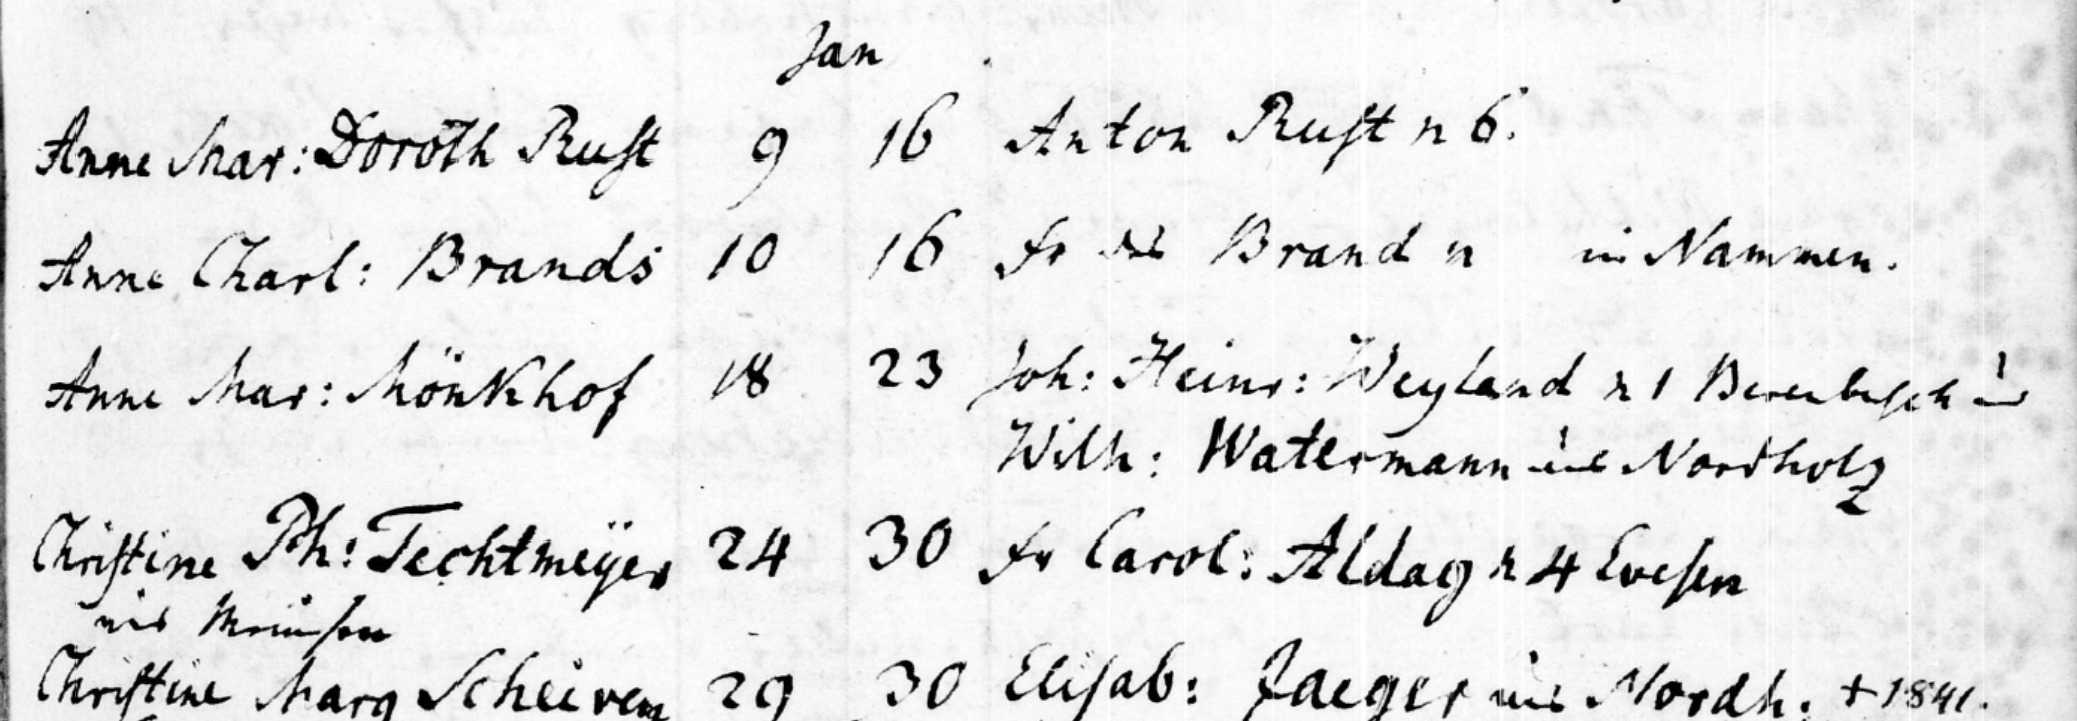 Jan
Anne Mar: Doroth Rust 9 16 Anton Rust n 6.
Anne Charl: Brands 10 16 Fr Brand n in Nammen.
Anne Mar: Mönkhof 18 23 Joh: Heinr: Weyland n 1 Berenbusch
Wilh: Watermann aus Nordholz
Christine Ph: Techtmeÿer 24 30 Fr Carol: Aldag n 4 Evesen
aus
Christine Marg 29 30 Elisab: Jaeger aus Nordh: + 1841.